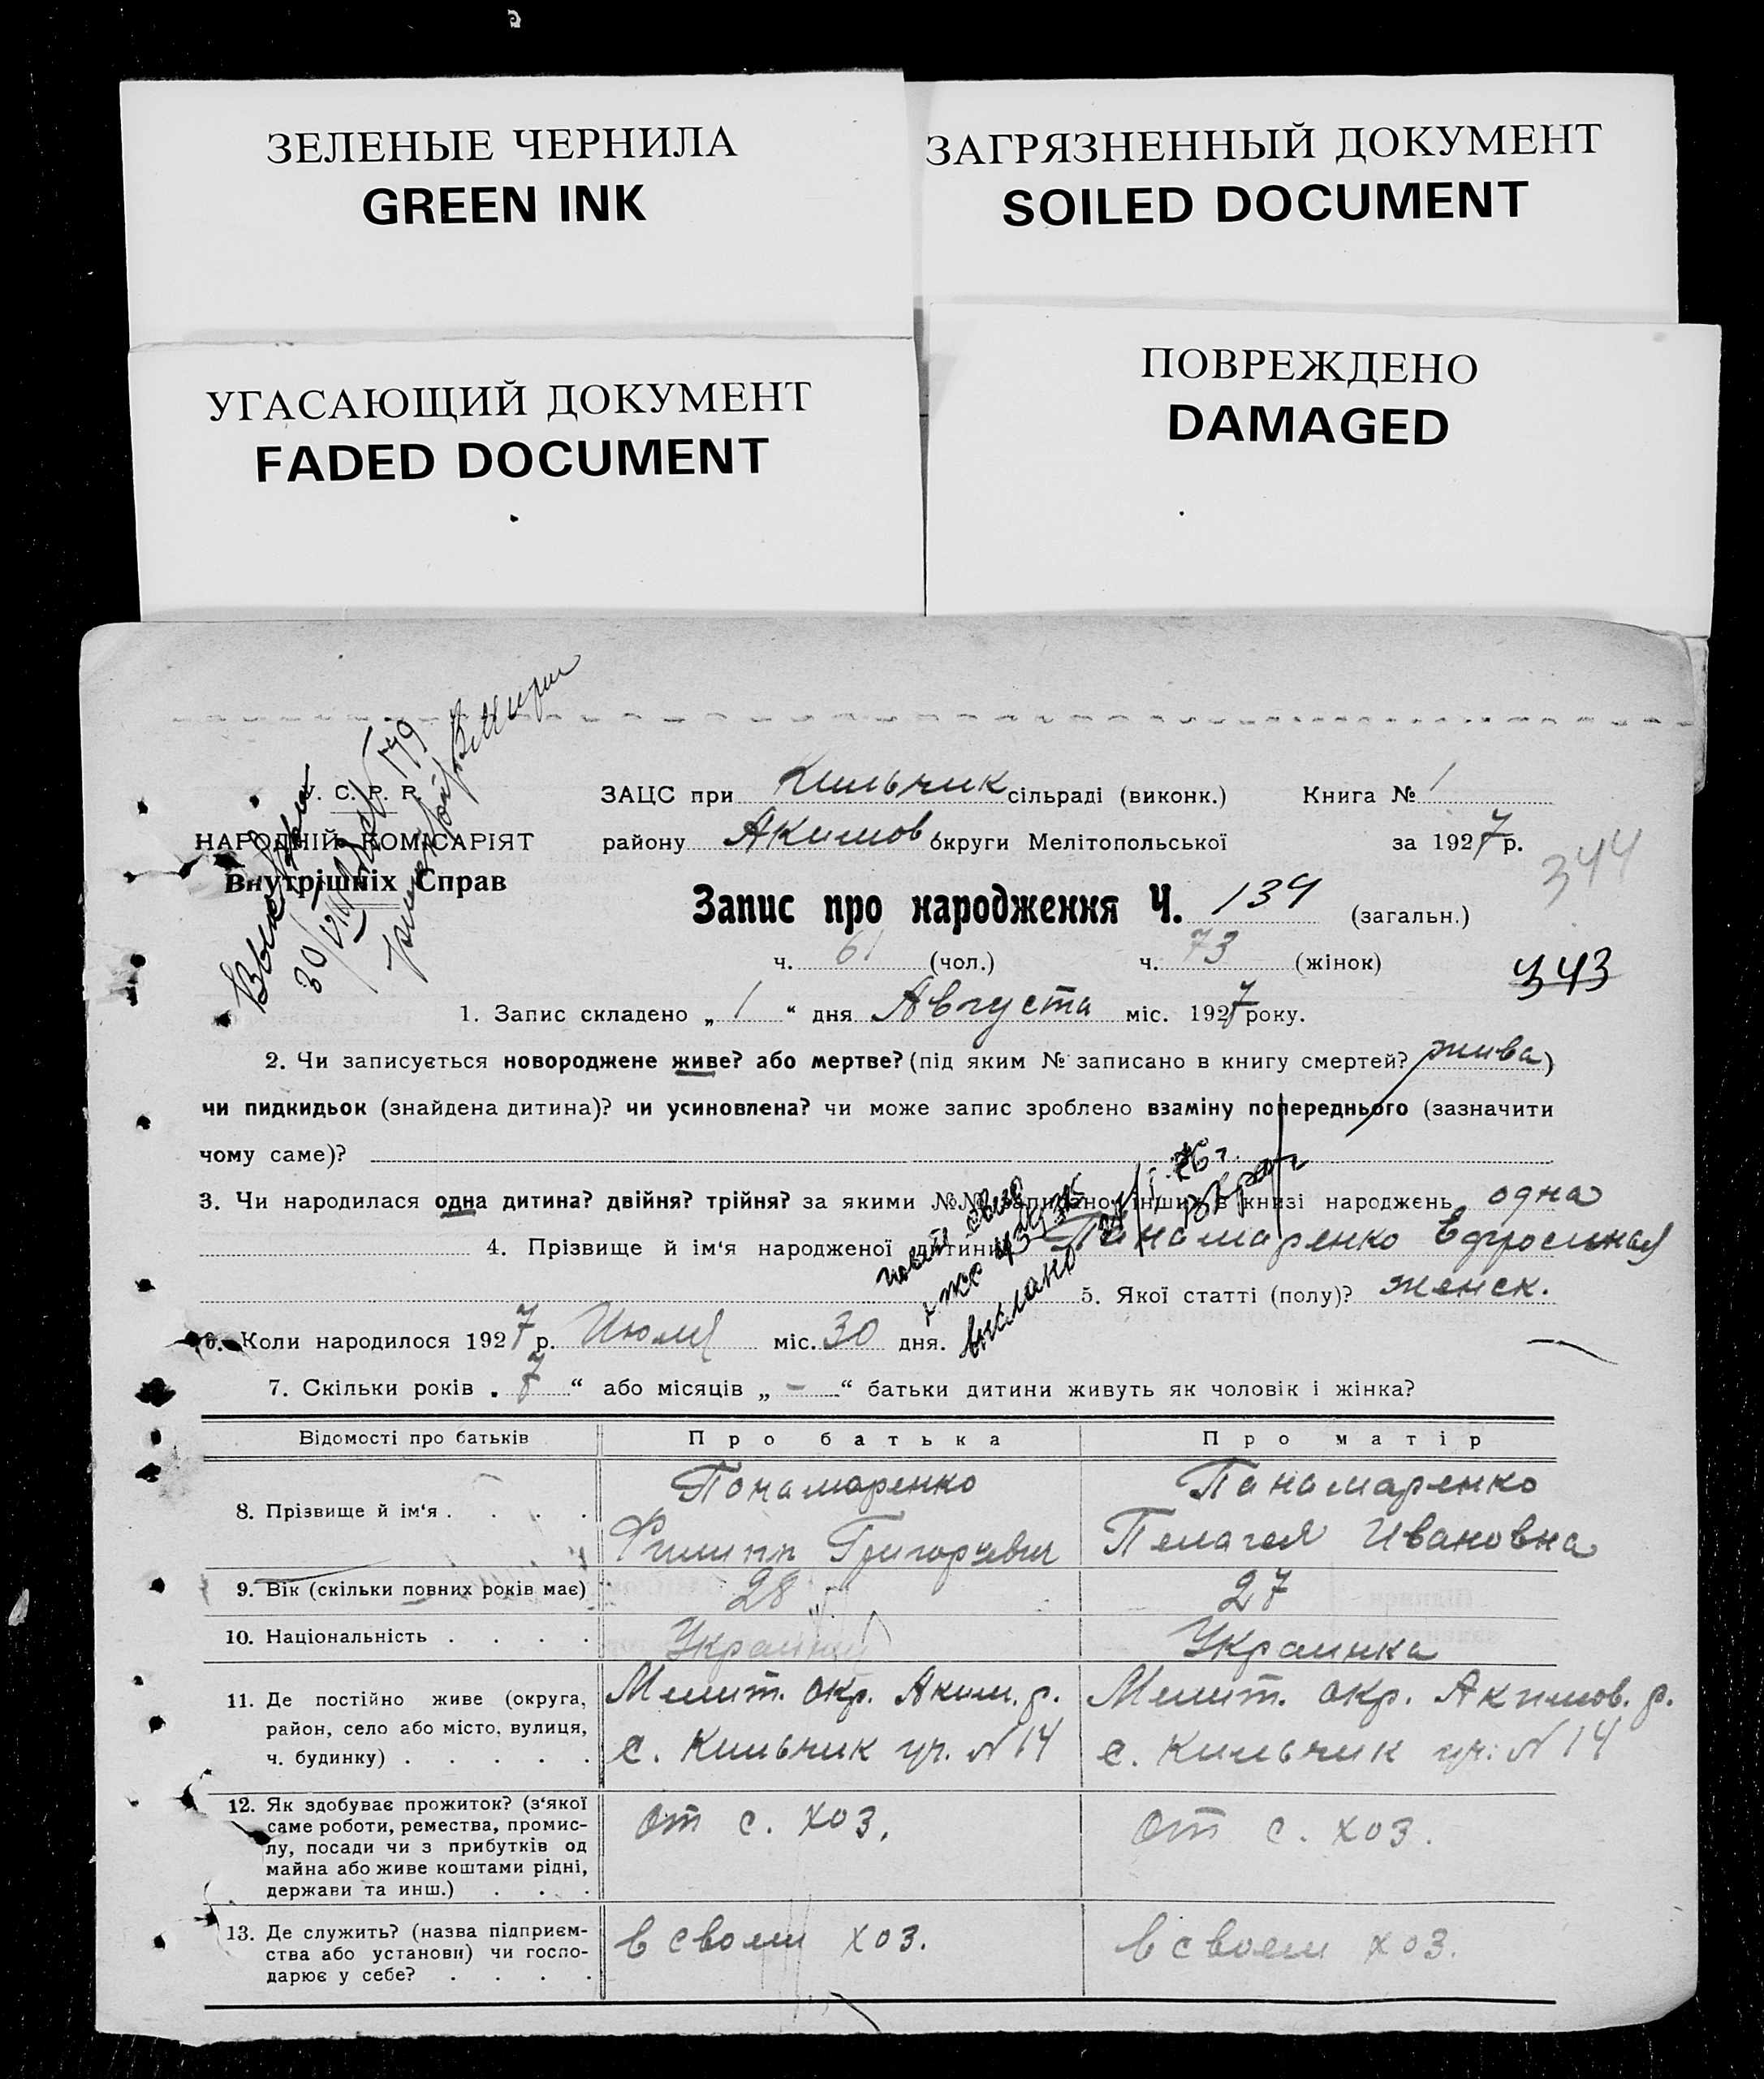 ЗЕЛЕНЫЕ ЧЕРНИЛА
GREEN INK
ЗАГРЯЗНЕННЫЙ ДОКУМЕНТ
SOILED DOCUMENT
УГАСАЮЩИЙ ДОКУМЕНТ
FADED DOCUMENT
ПОВРЕЖДЕНО
DAMAGED
У. С. Р. Р.
НАРОДНІЙ КОМІСАРІЯТ
Внутрішніх Справ
ЗАЦС при Кильчик сільраді (виконк.) Книга № 1
району Акимов округи Мелітопольської за 1927 р.
344
Запис про народження Ч. 134 (загальн.)
ч. 61 (чол.) ч. 73 (жінок)
343
1. Запис складено „ 1 “ дня Августа міс. 1927 року.
2. Чи записується новороджене живе? або мертве? (під яким № записано в книгу смертей? жива)
чи пидкидьок (знайдена дитина)? чи усиновлена? чи може запис зроблено взаміну попереднього (зазначити
чому саме)?
3. Чи народилася одна дитина? двійня? трійня? за якими №№ записано інших в книзі народжень одна
4. Прізвище й ім'я народженої дитини Панамаренко Ефросиная
5. Якої статті (полу)? женск.
6. Коли народилося 1927 р. Июля міс. 30 дня.
7. Скільки років „ 7 “ або місяців „ - “ батьки дитини живуть як чоловік і жінка?
Відомості про батьків Про батька Про матір
8. Прізвище й ім'я . . . . Понамаренко Филипп Григорьевич
Панамаренко Пелагея Ивановна
9. Вік (скільки повних років має) 28 27
10. Національність . . . . Украинка
11. Де постійно живе (округа,
район, село або місто, вулиця,
ч. будинку) . . . . .
Мелит. окр. Аким. р.
с. Кильчик уч. N 14
Мелит. окр. Акимов. р.
с. Кильчик уч. N 14
12. Як здобуває прожиток? (з'якої
саме роботи, ремества, промис-
лу, посади чи з прибутків од
майна або живе коштами рідні,
держави та инш.) . . .
от с. хоз.
от с. хоз.
13. Де служить? (назва підприєм-
ства або установи) чи госпо-
дарює у себе? . . . .
в своем хоз.
в своем хоз.